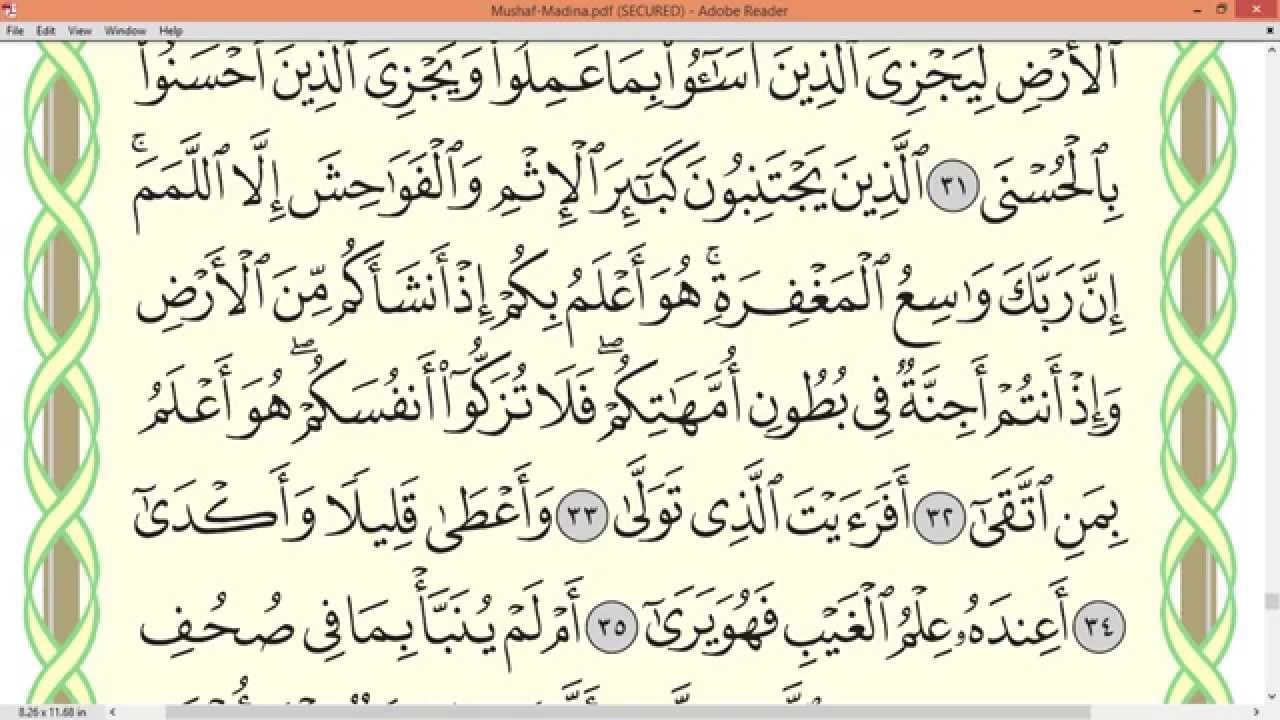 Mushaf-Madina.pdf (SECURED) - Adobe Reader
File Edit View Window Help
ٱلْأَرْضِ لِيَجْزِىَ ٱلَّذِينَ أَسَٰٓـُٔوا۟ بِمَا عَمِلُوا۟ وَيَجْزِىَ ٱلَّذِينَ أَحْسَنُوا۟
بِٱلْحُسْنَى ٣١ ٱلَّذِينَ يَجْتَنِبُونَ كَبَٰٓئِرَ ٱلْإِثْمِ وَٱلْفَوَٰحِشَ إِلَّا ٱللَّمَمَ ۚ
إِنَّ رَبَّكَ وَٰسِعُ ٱلْمَغْفِرَةِ ۚ هُوَ أَعْلَمُ بِكُمْ إِذْ أَنشَأَكُم مِّنَ ٱلْأَرْضِ
وَإِذْ أَنتُمْ أَجِنَّةٌ فِى بُطُونِ أُمَّهَٰتِكُمْ ۖ فَلَا تُزَكُّوٓا۟ أَنفُسَكُمْ ۖ هُوَ أَعْلَمُ
بِمَنِ ٱتَّقَىٰٓ ٣٢ أَفَرَءَيْتَ ٱلَّذِى تَوَلَّىٰ ٣٣ وَأَعْطَىٰ قَلِيلًا وَأَكْدَىٰٓ
٣٤ أَعِندَهُۥ عِلْمُ ٱلْغَيْبِ فَهُوَ يَرَىٰٓ ٣٥ أَمْ لَمْ يُنَبَّأْ بِمَا فِى صُحُفِ
8.26 x 11.68 in